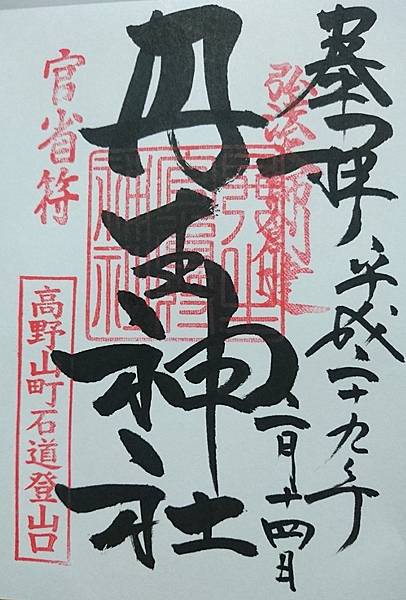 奉拝 平成二十九年
二月十四日
弘法大師創建
丹生神社
官省符
高野山町石道登山口